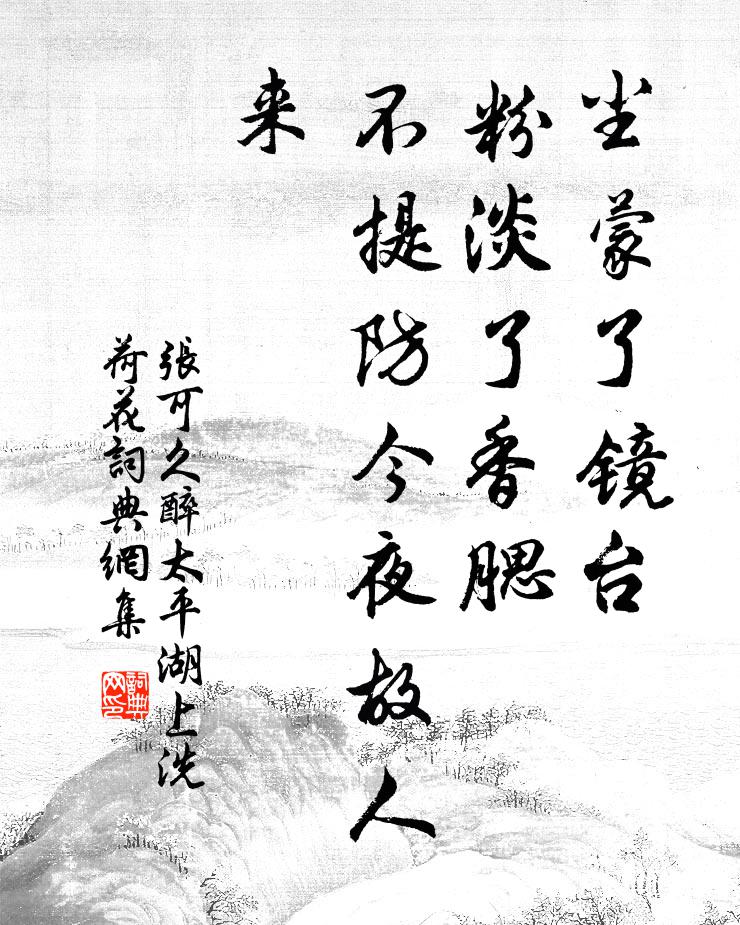 尘蒙了镜台
粉淡了香腮
不提防今夜故人
来
張可久醉太平湖上洗
荷花詞典網集
詞典
网印